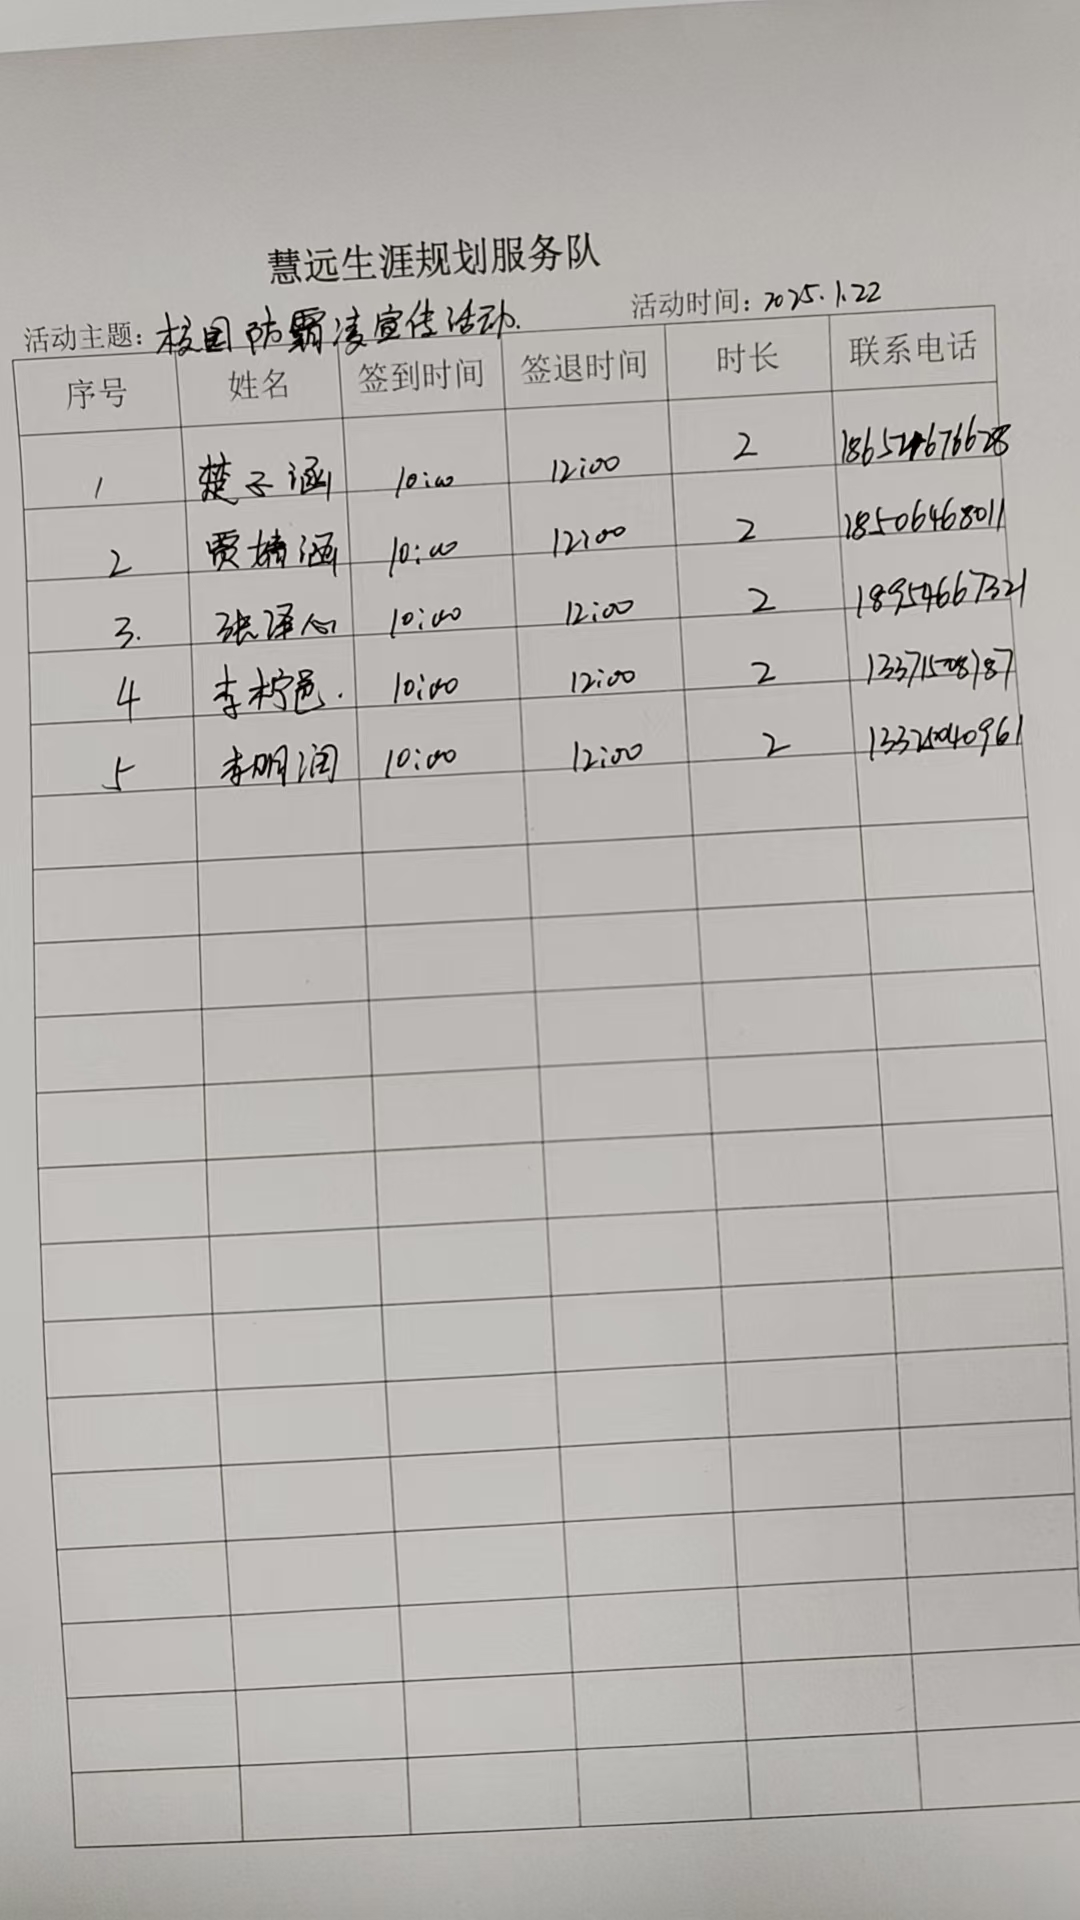 慧远生涯规划服务队
活动主题：校园防霸凌宣传活动. 活动时间：2025.1.22
序号 姓名 签到时间 签退时间 时长 联系电话
1 楚子涵 10:00 12:00 2 18652676628
2 贾婧涵 10:00 12:00 2 18506468011
3. 张泽心 10:00 12:00 2 18954667321
4 李柠邑. 10:00 12:00 2 13371508787
5 李明润 10:00 12:00 2